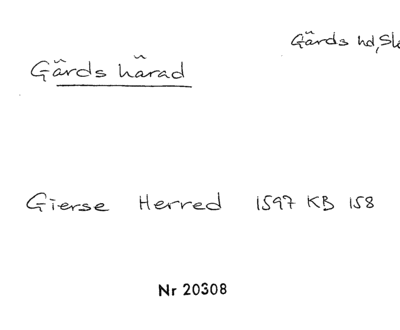 Gärds hd, Sk
Gärds härad
Gierse Herred 1597 KB 158
Nr 20308